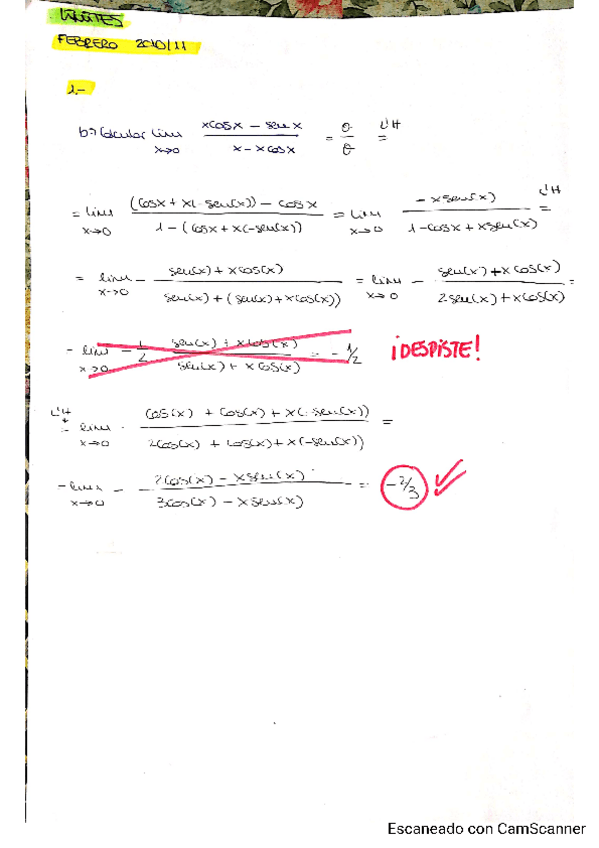 LÍMITES
FEBRERO 2010/11
1.-
b) Calcular lim x→0 (xcosx - senx)/(x - xcosx) = 0/0 L'H =
= lim x→0 ((cosx + x(-sen(x)) - cosx)/(1 - (cosx + x(-sen(x))) = lim x→0 (-xsen(x))/(1-cosx + xsen(x)) L'H =
= lim x→0 - (sen(x) + xcos(x))/(sen(x) + (sen(x) + xcos(x))) = lim x→0 - (sen(x) + xcos(x))/(2sen(x) + xcos(x)) =
= lim x→0 - 1/2 (sen(x) + xcos(x))/(sen(x) + xcos(x)) = - 1/2 ¡DESPISTE!
L'H = lim x→0 - (cos(x) + cos(x) + x(-sen(x)))/(2cos(x) + cos(x) + x(-sen(x))) =
= lim x→0 - (2cos(x) - xsen(x))/(3cos(x) - xsen(x)) = -2/3
Escaneado con CamScanner